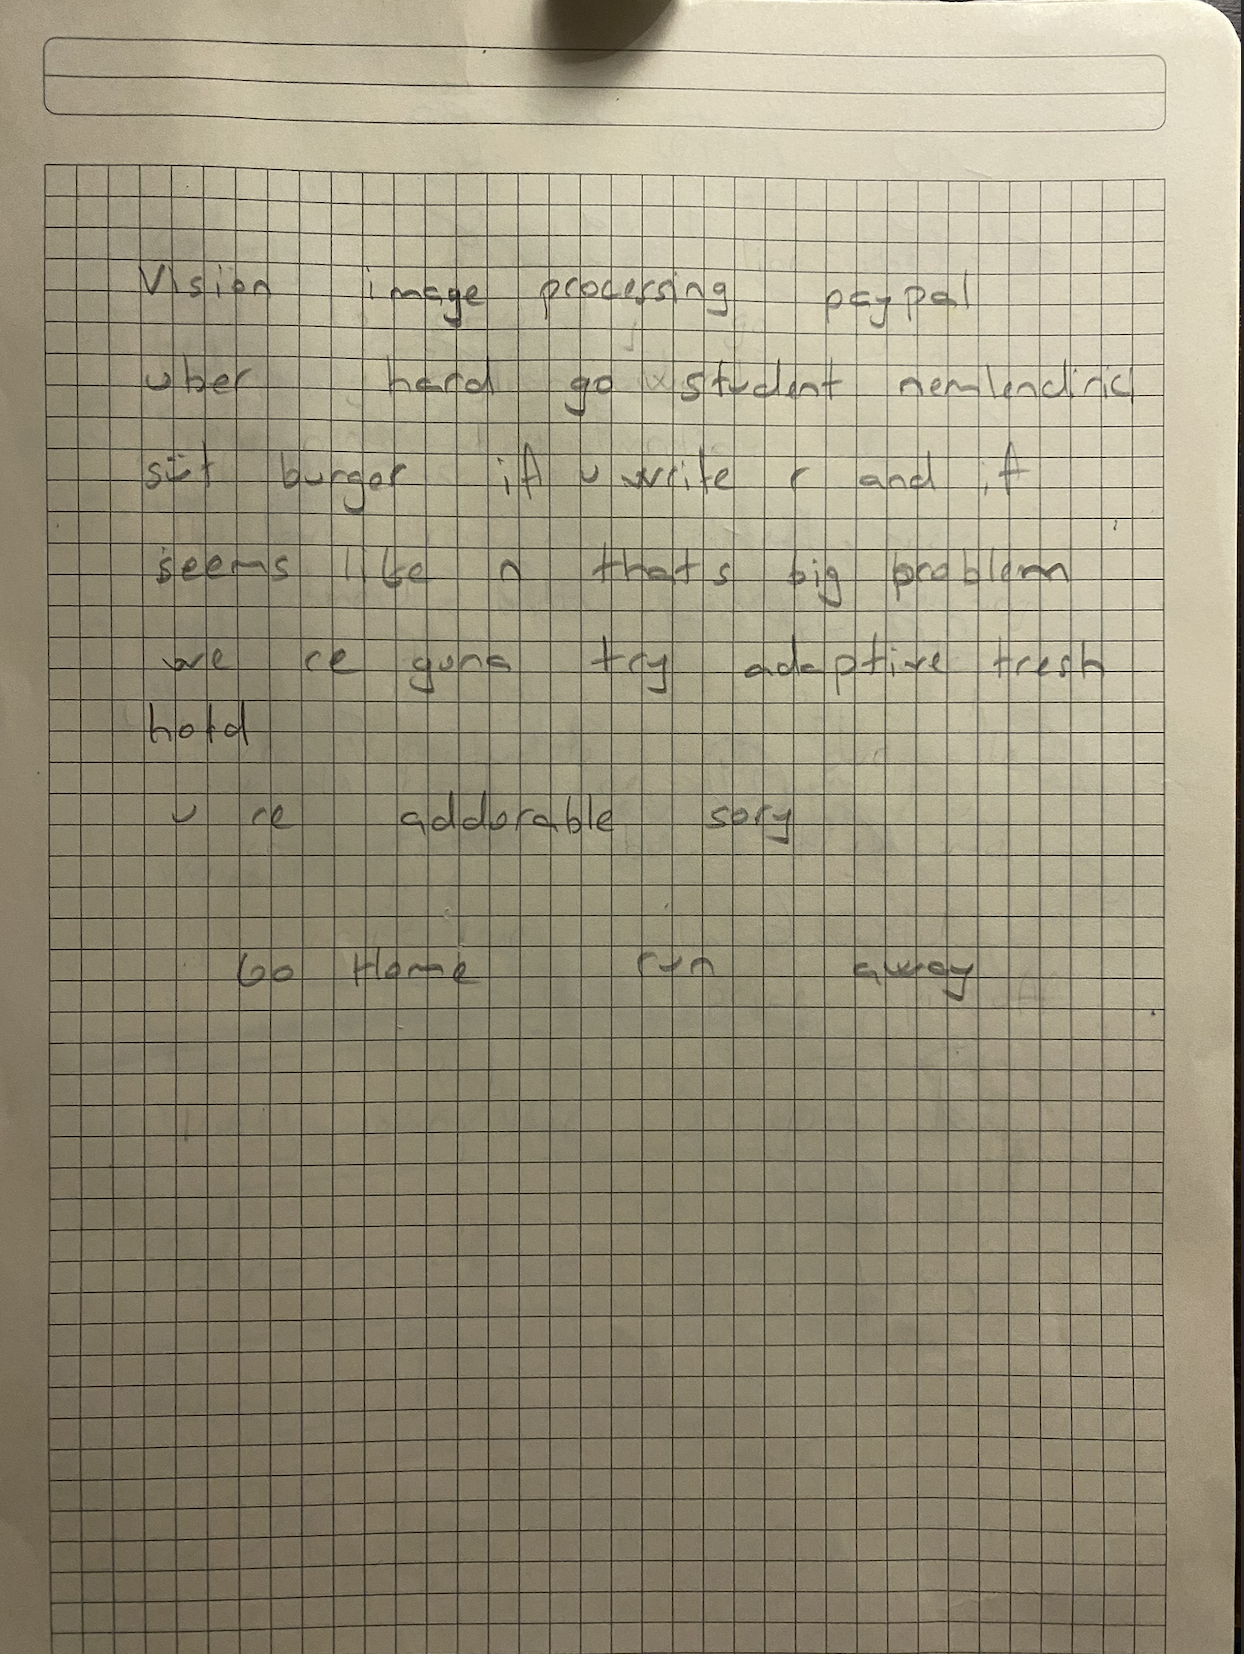 Vision image processing paypal
uber hard go student nemlendirici
süt burger if u write r and it
seems like n that's big problem
we re guna try adaptive tresh
hold
u re addorable sory
Go Home run away